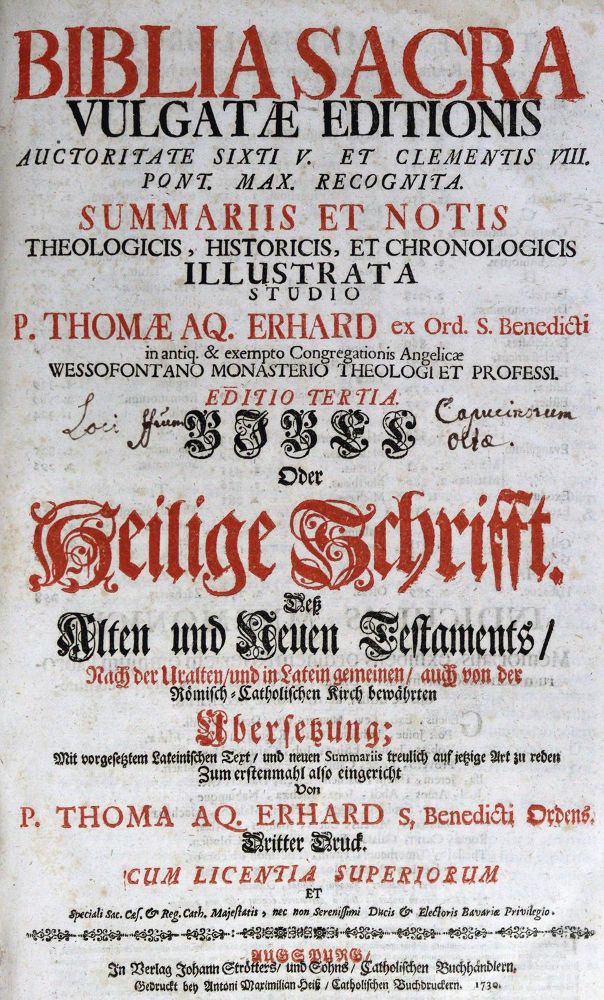 BIBLIA SACRA
VULGATÆ EDITIONIS
AUCTORITATE SIXTI V. ET CLEMENTIS VIII.
PONT. MAX. RECOGNITA.
SUMMARIIS ET NOTIS
THEOLOGICIS, HISTORICIS, ET CHRONOLOGICIS
ILLUSTRATA
STUDIO
P. THOMÆ AQ. ERHARD ex Ord. S. Benedicti
in antiq. & exempto Congregationis Angelicæ
WESSOFONTANO MONASTERIO THEOLOGI ET PROFESSI.
EDITIO TERTIA.
Loci Capucinorum
BIBEL
Oder
Heilige Schrifft.
Deß
Alten und Neuen Testaments/
Nach der Uralten/und in Latein gemeinen/ auch von der
Römisch-Catholischen Kirch bewährten
Übersetzung;
Mit vorgesetztem Lateinischen Text/ und neuen Summariis treulich auf jetzige Art zu reden
Zum erstenmahl also eingericht
Von
P. THOMA AQ. ERHARD S, Benedicti Ordens.
Dritter Druck.
CUM LICENTIA SUPERIORUM
ET
Speciali Sac. Cæs. & Reg. Cath. Majestatis, nec non Serenissimi Ducis & Electoris Bavariæ Privilegio.
AUGSPURG/
In Verlag Johann Strötters/ und Sohns/ Catholischen Buchhändlern.
Gedruckt bey Antoni Maximilian Heiß/ Catholischen Buchdruckern. 1730.